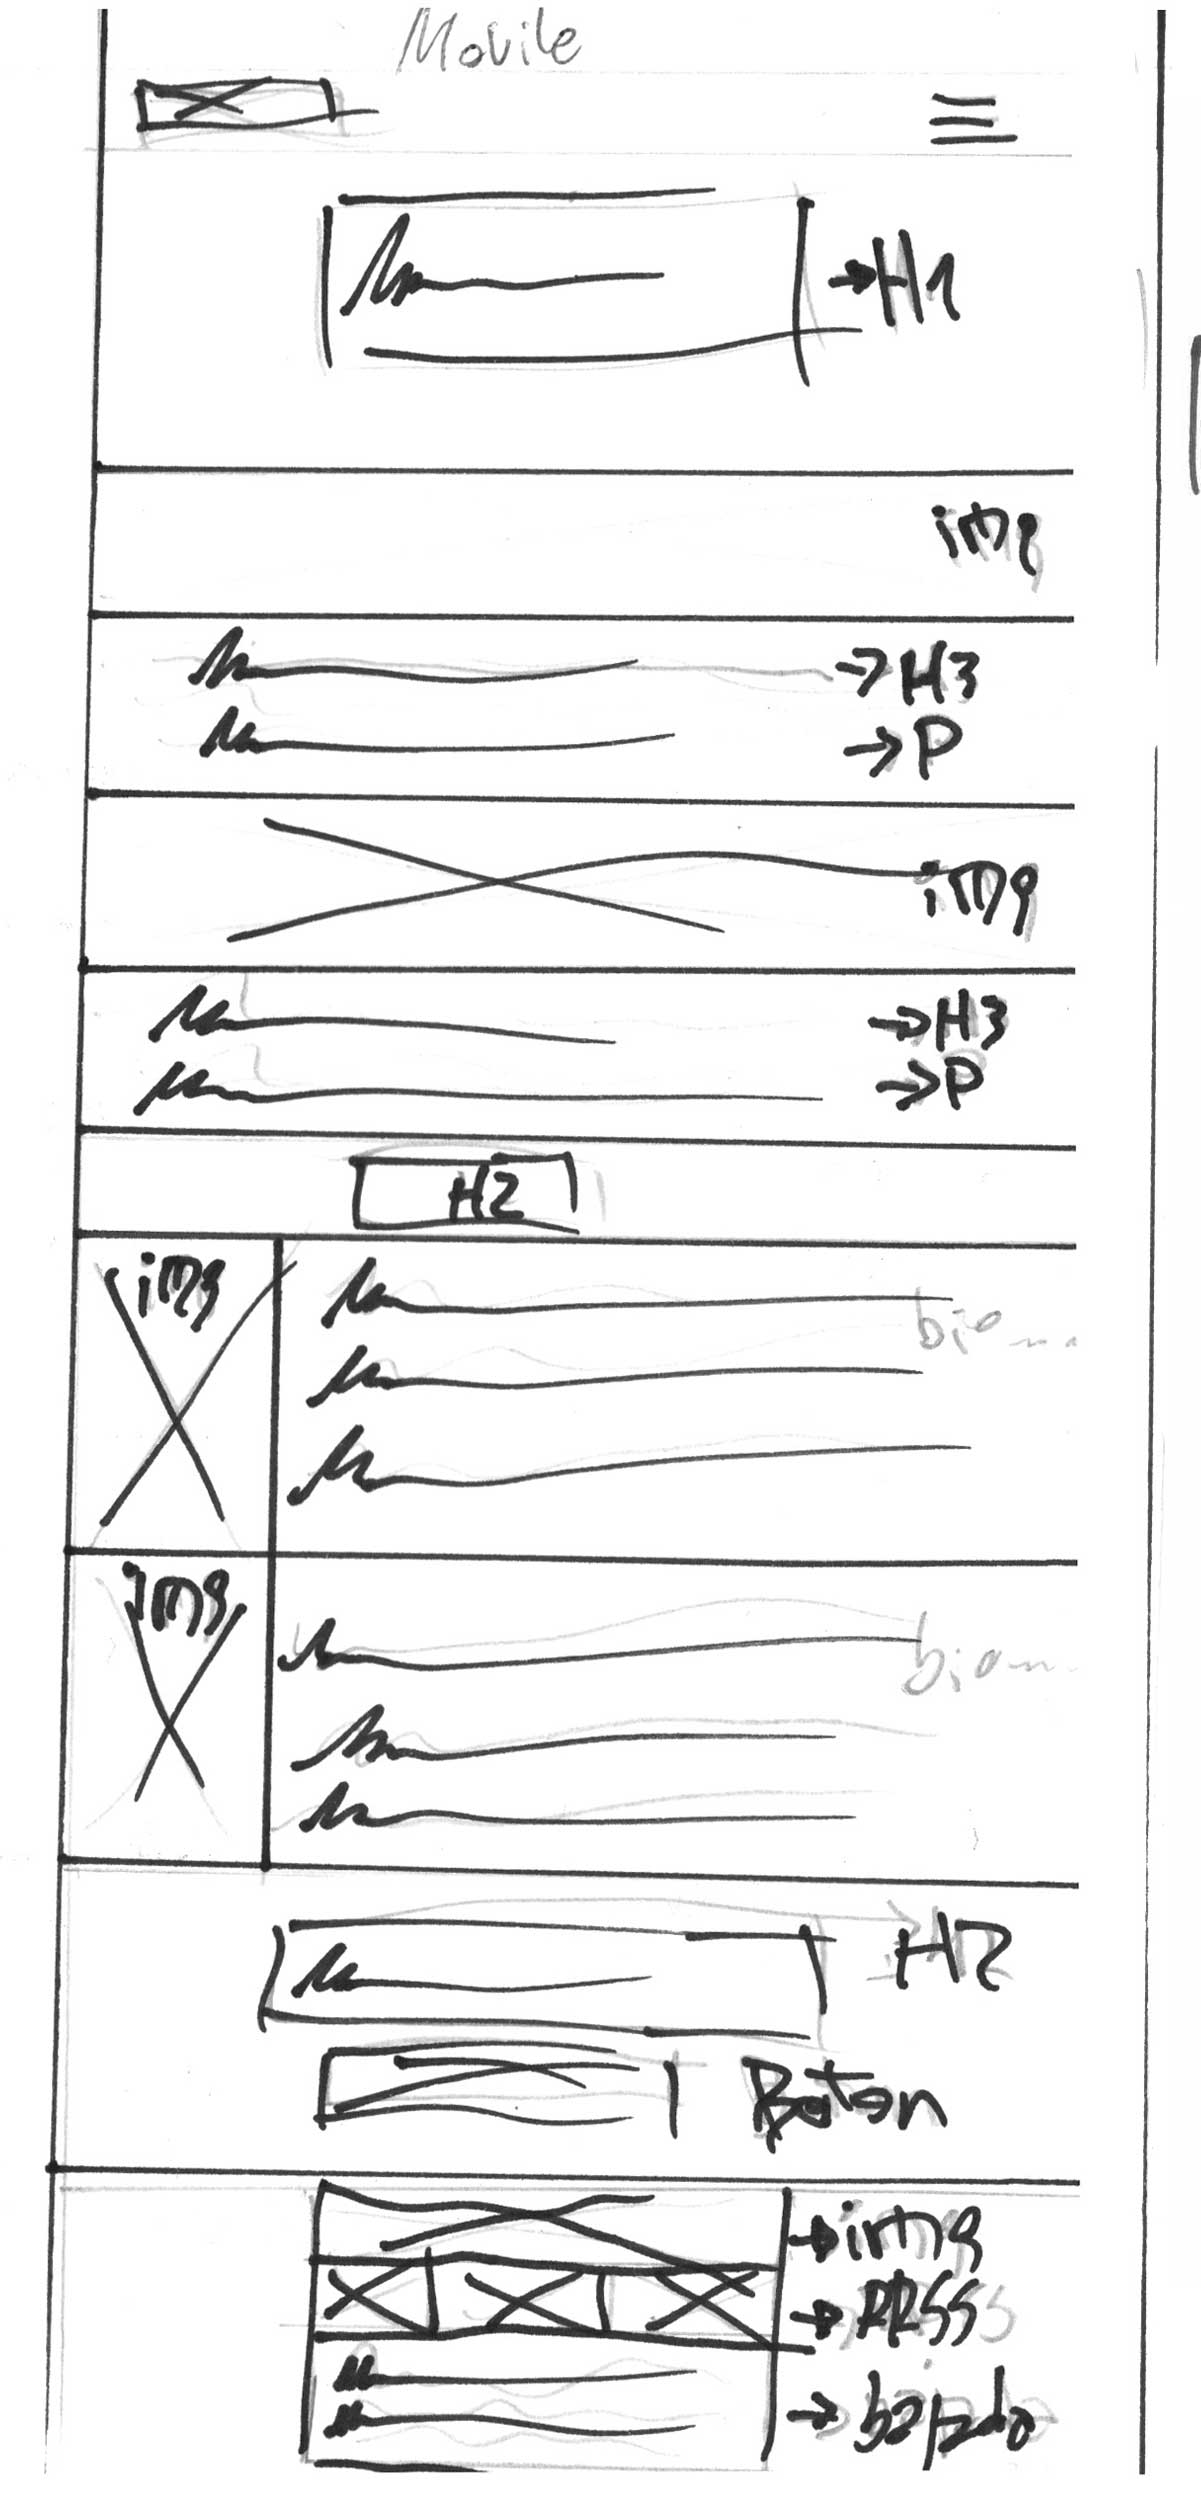 Movile
→H1
img
→H3
→P
img
→H3
→P
H2
img
bio
img
bio
H2
Boton
→img
→RRSS